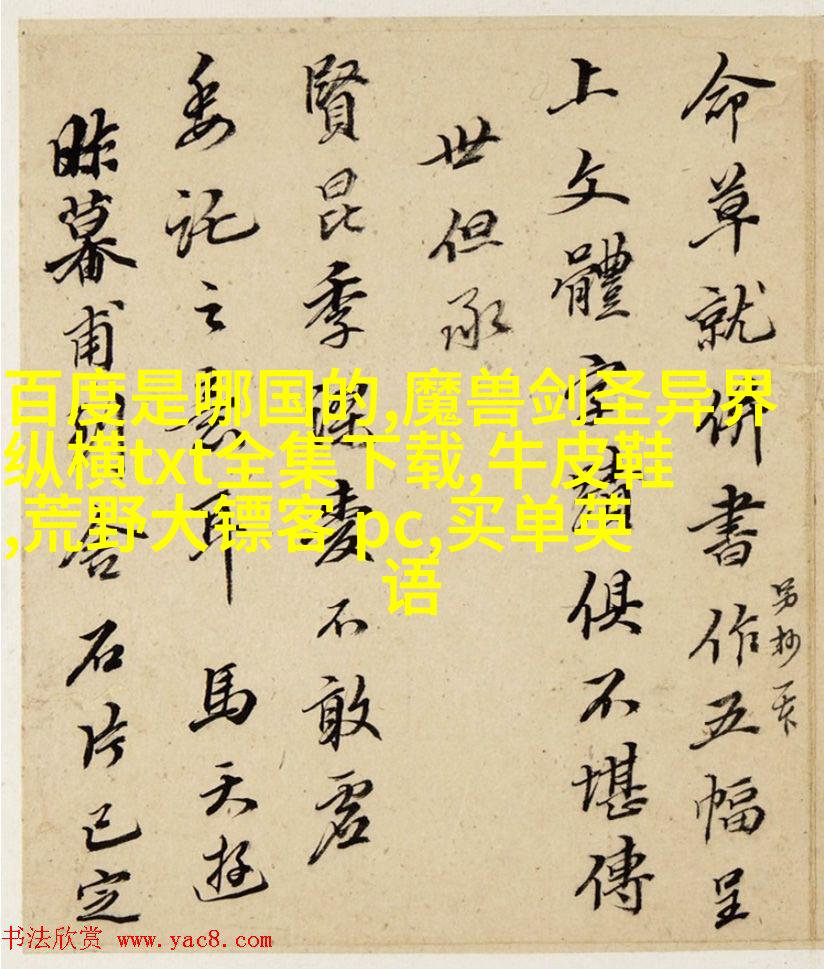 命草就併書作五幅呈
另抄
上文體字俱不堪傳
世但承
賢昆季不敢虛
委託之意耳馬天遊
昨暮甫舍石片已定
百度是哪国的,魔兽剑圣异界
纵横txt全集下载,牛皮鞋
,荒野大镖客 pc,买单英
语
书法欣赏 www.yac8.com